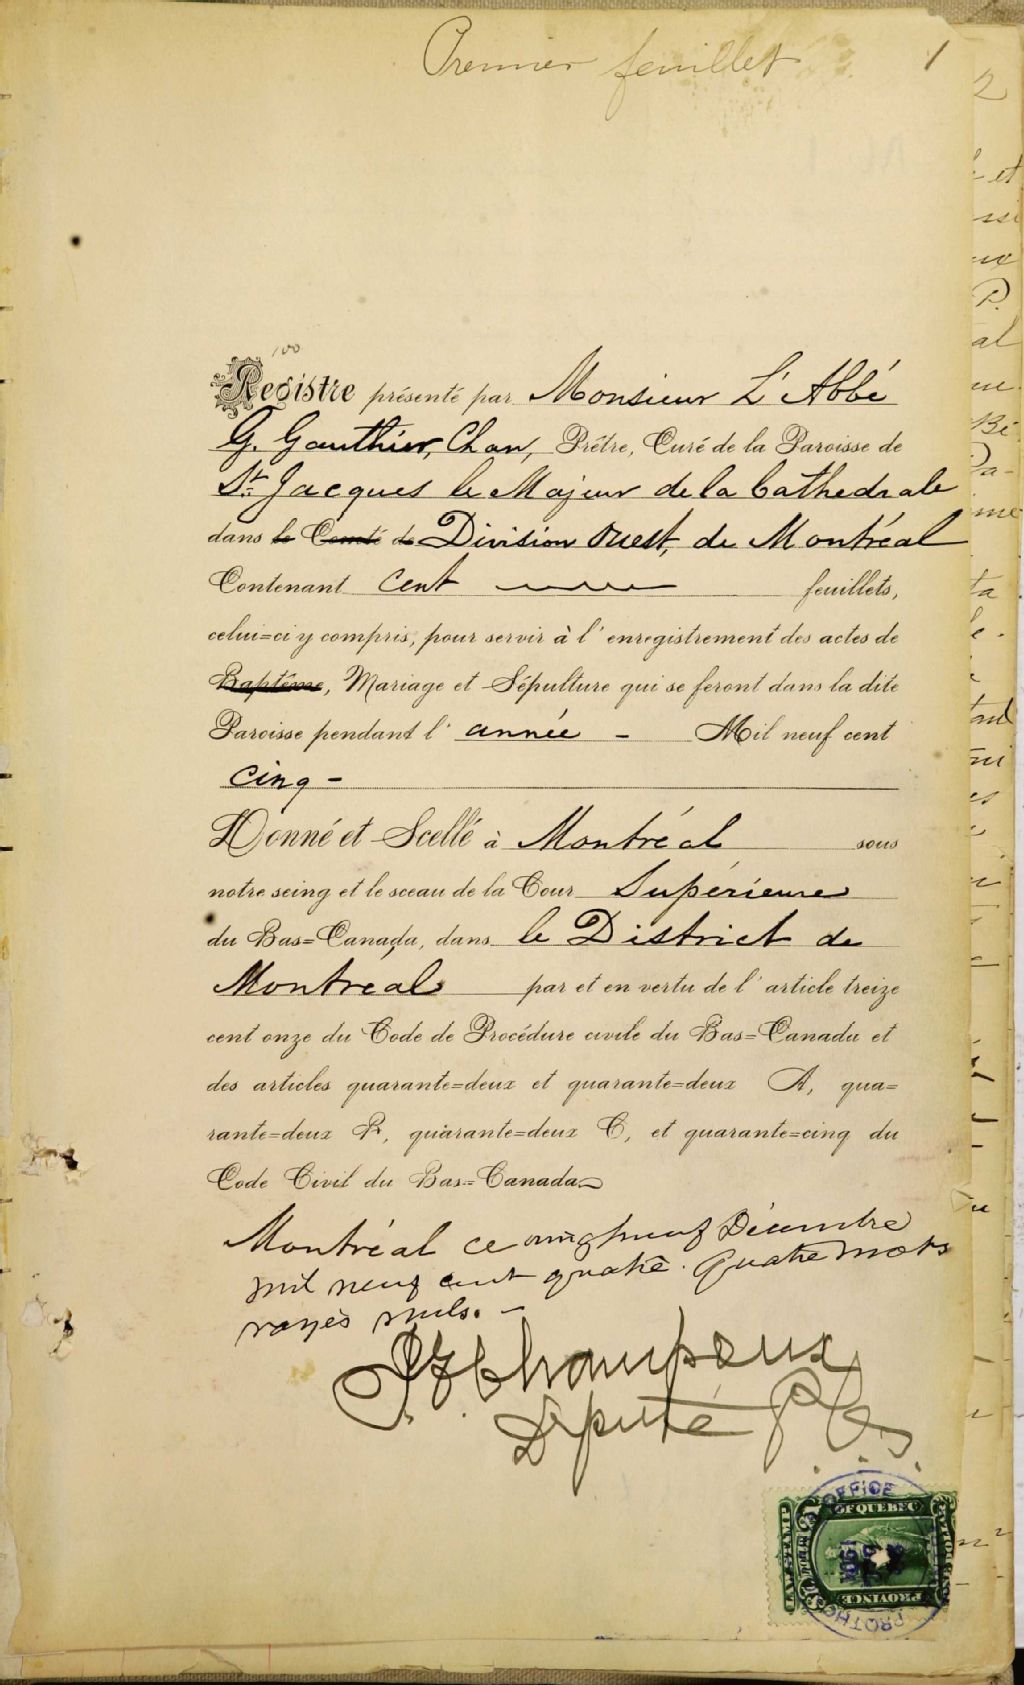 Premier feuillet
1
100
Registre présenté par Monsieur L'Abbé
G. Gauthier, Chan, Prêtre, Curé de la Paroisse de
St. Jacques le Majeur de la Cathedrale
dans le Comté de Division Ouest, de Montréal
Contenant cent feuillets,
celui=ci y compris, pour servir à l'enregistrement des actes de
Baptême, Mariage et Sépulture qui se feront dans la dite
Paroisse pendant l'année - Mil neuf cent
cinq -
Donné et Scellé à Montréal sous
notre seing et le sceau de la Cour Supérieure
du Bas=Canada, dans le District de
Montréal par et en vertu de l'article treize
cent onze du Code de Procédure civile du Bas=Canada et
des articles quarante=deux et quarante=deux A, qua=
rante=deux B, quarante=deux C, et quarante=cinq du
Code Civil du Bas=Canada
Montréal ce vingt neuf Décembre
mil neuf cent quatre. Quatre mots
rayés nuls. -
Champoux
Député P. C. S.
LAW STAMP
OF QUEBEC
PROVINCE
OFFICE